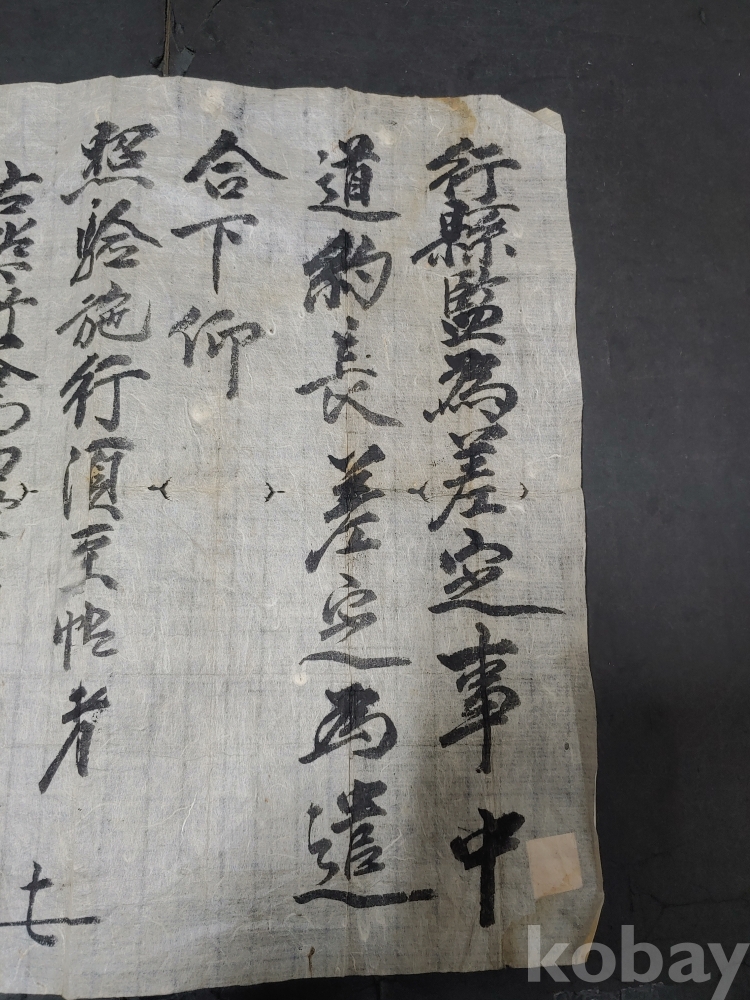 行縣監爲差定事中
道約長差定爲遣
合下仰
照驗施行須至帖者
kobay